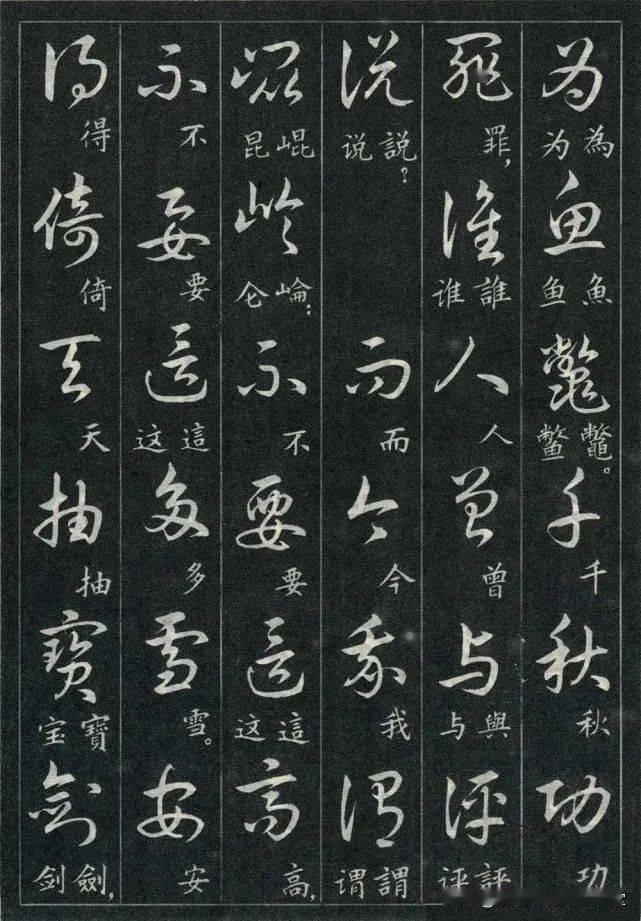 為 为為 魚 鱼魚 鼈 鳖鼈。 千 千 秋 秋 功 功
罪 罪， 誰 谁誰 人 人 曾 曾 與 与與 評 评評
説 说説？ 而 而 今 今 我 我 謂 谓謂
崐 昆崐 崙 仑崙： 不 不 要 要 這 这這 高 高，
不 不 要 要 這 这這 多 多 雪 雪。 安 安
得 得 倚 倚 天 天 抽 抽 寶 宝寶 劍 剑劍，